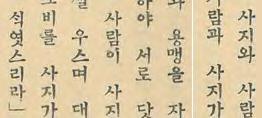 사지와 사람
람과 사지가
와 용맹을 자
하야 서로 닷
사람이 사지
우스며 대
비를 사지가
식엿스리라」